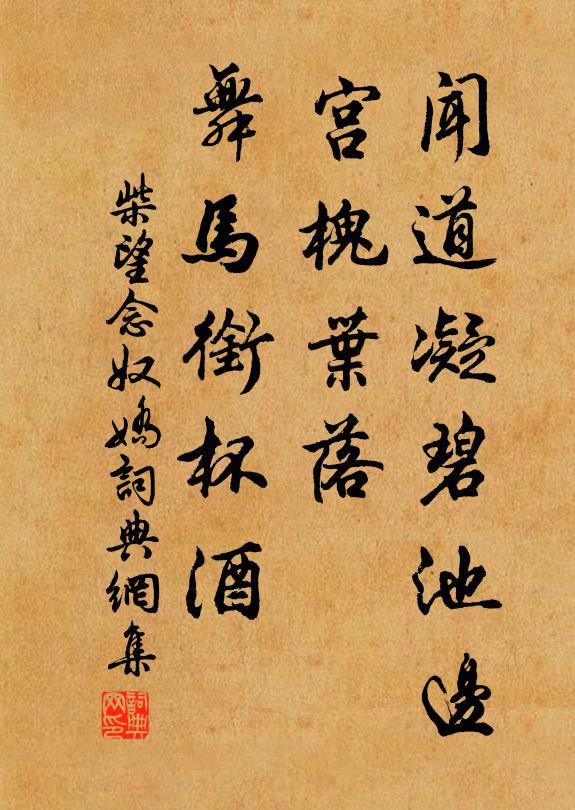 聞道凝碧池邊
宮槐葉落
舞馬銜杯酒
柴望念奴嬌詞典網集
詞典網印